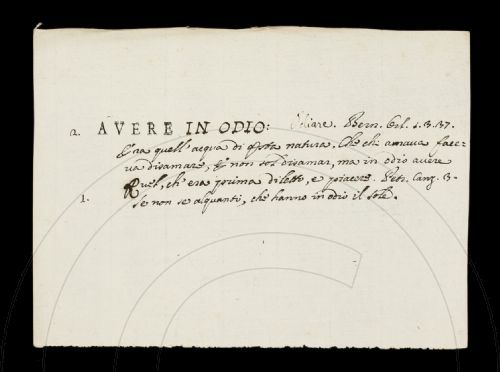 2. AVERE IN ODIO: Odiare. Bern. Orl. 1. 3. 37.
Era quell'acqua di questa natura, Che chi amava face-
va disamare, E non sol disamar, ma in odio avere
Quel, ch'era prima diletto, e piacere. Petr. Canz. 3.
1. Se non se alquanti, che hanno in odio il sole.